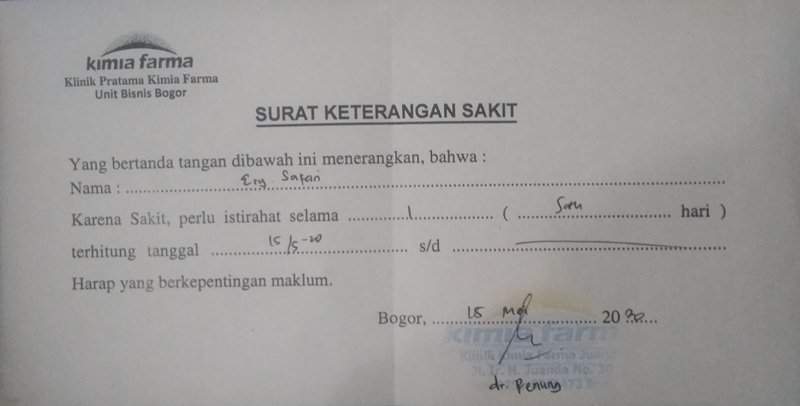 kimia farma
Klinik Pratama Kimia Farma
Unit Bisnis Bogor
SURAT KETERANGAN SAKIT
Yang bertanda tangan dibawah ini menerangkan, bahwa :
Nama : Ery Safari
Karena Sakit, perlu istirahat selama 1 ( Satu hari )
terhitung tanggal 15/5-20 s/d
Harap yang berkepentingan maklum.
Bogor, 15 Mei 2020
kimia farma
Klinik Kimia Farma
Jl. Ir. H. Juanda No. 30
dr. Penung